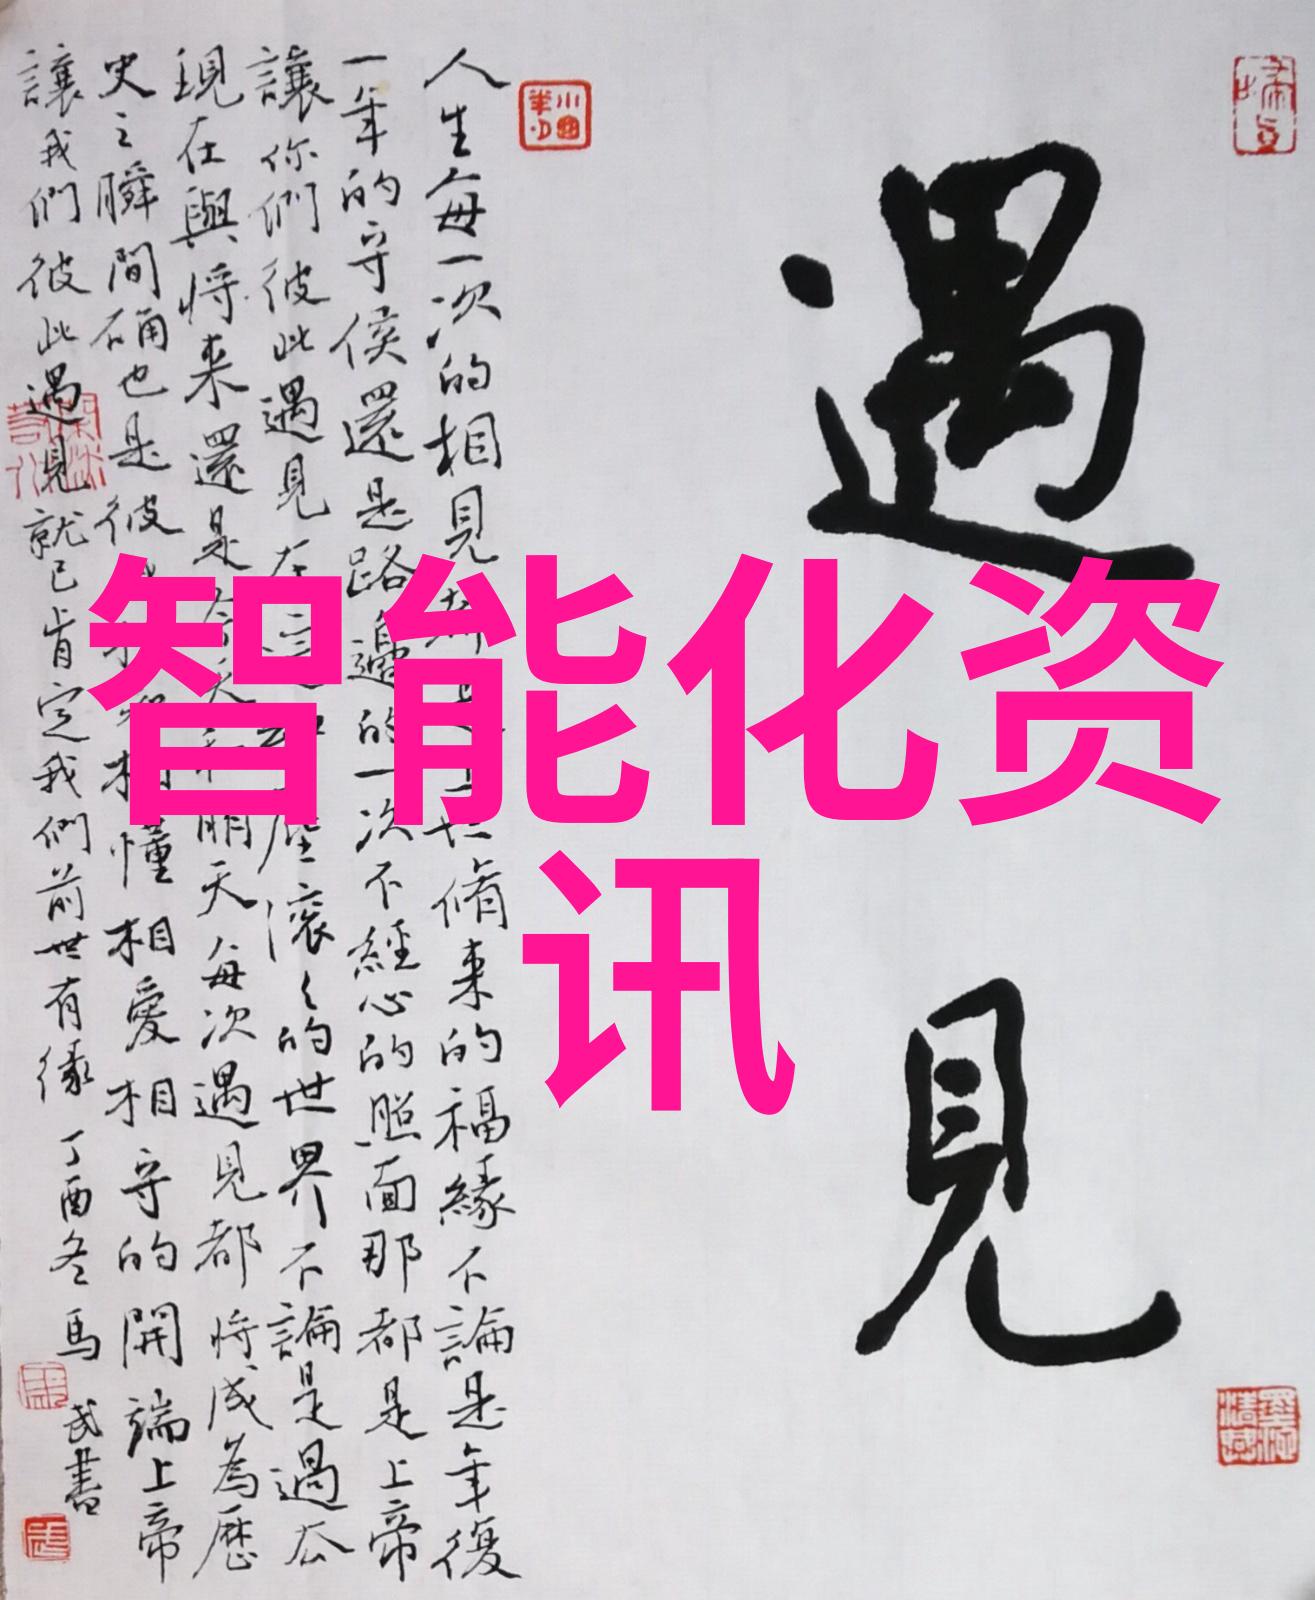 遇見
人生每一次的相見脩来的福緣不論是年復
一年的守侯還是路邊的一次不經心的照面那都是上帝
讓你們彼此遇見在塵滾々的世界不論是過去
現在與将来還是天明天每次遇見都将成為歷
史之瞬間确也是彼相懂相愛相守的開端上帝
讓我們彼此遇見就已肯定我們前世有缘 丁酉冬馬武書
智能化资
讯